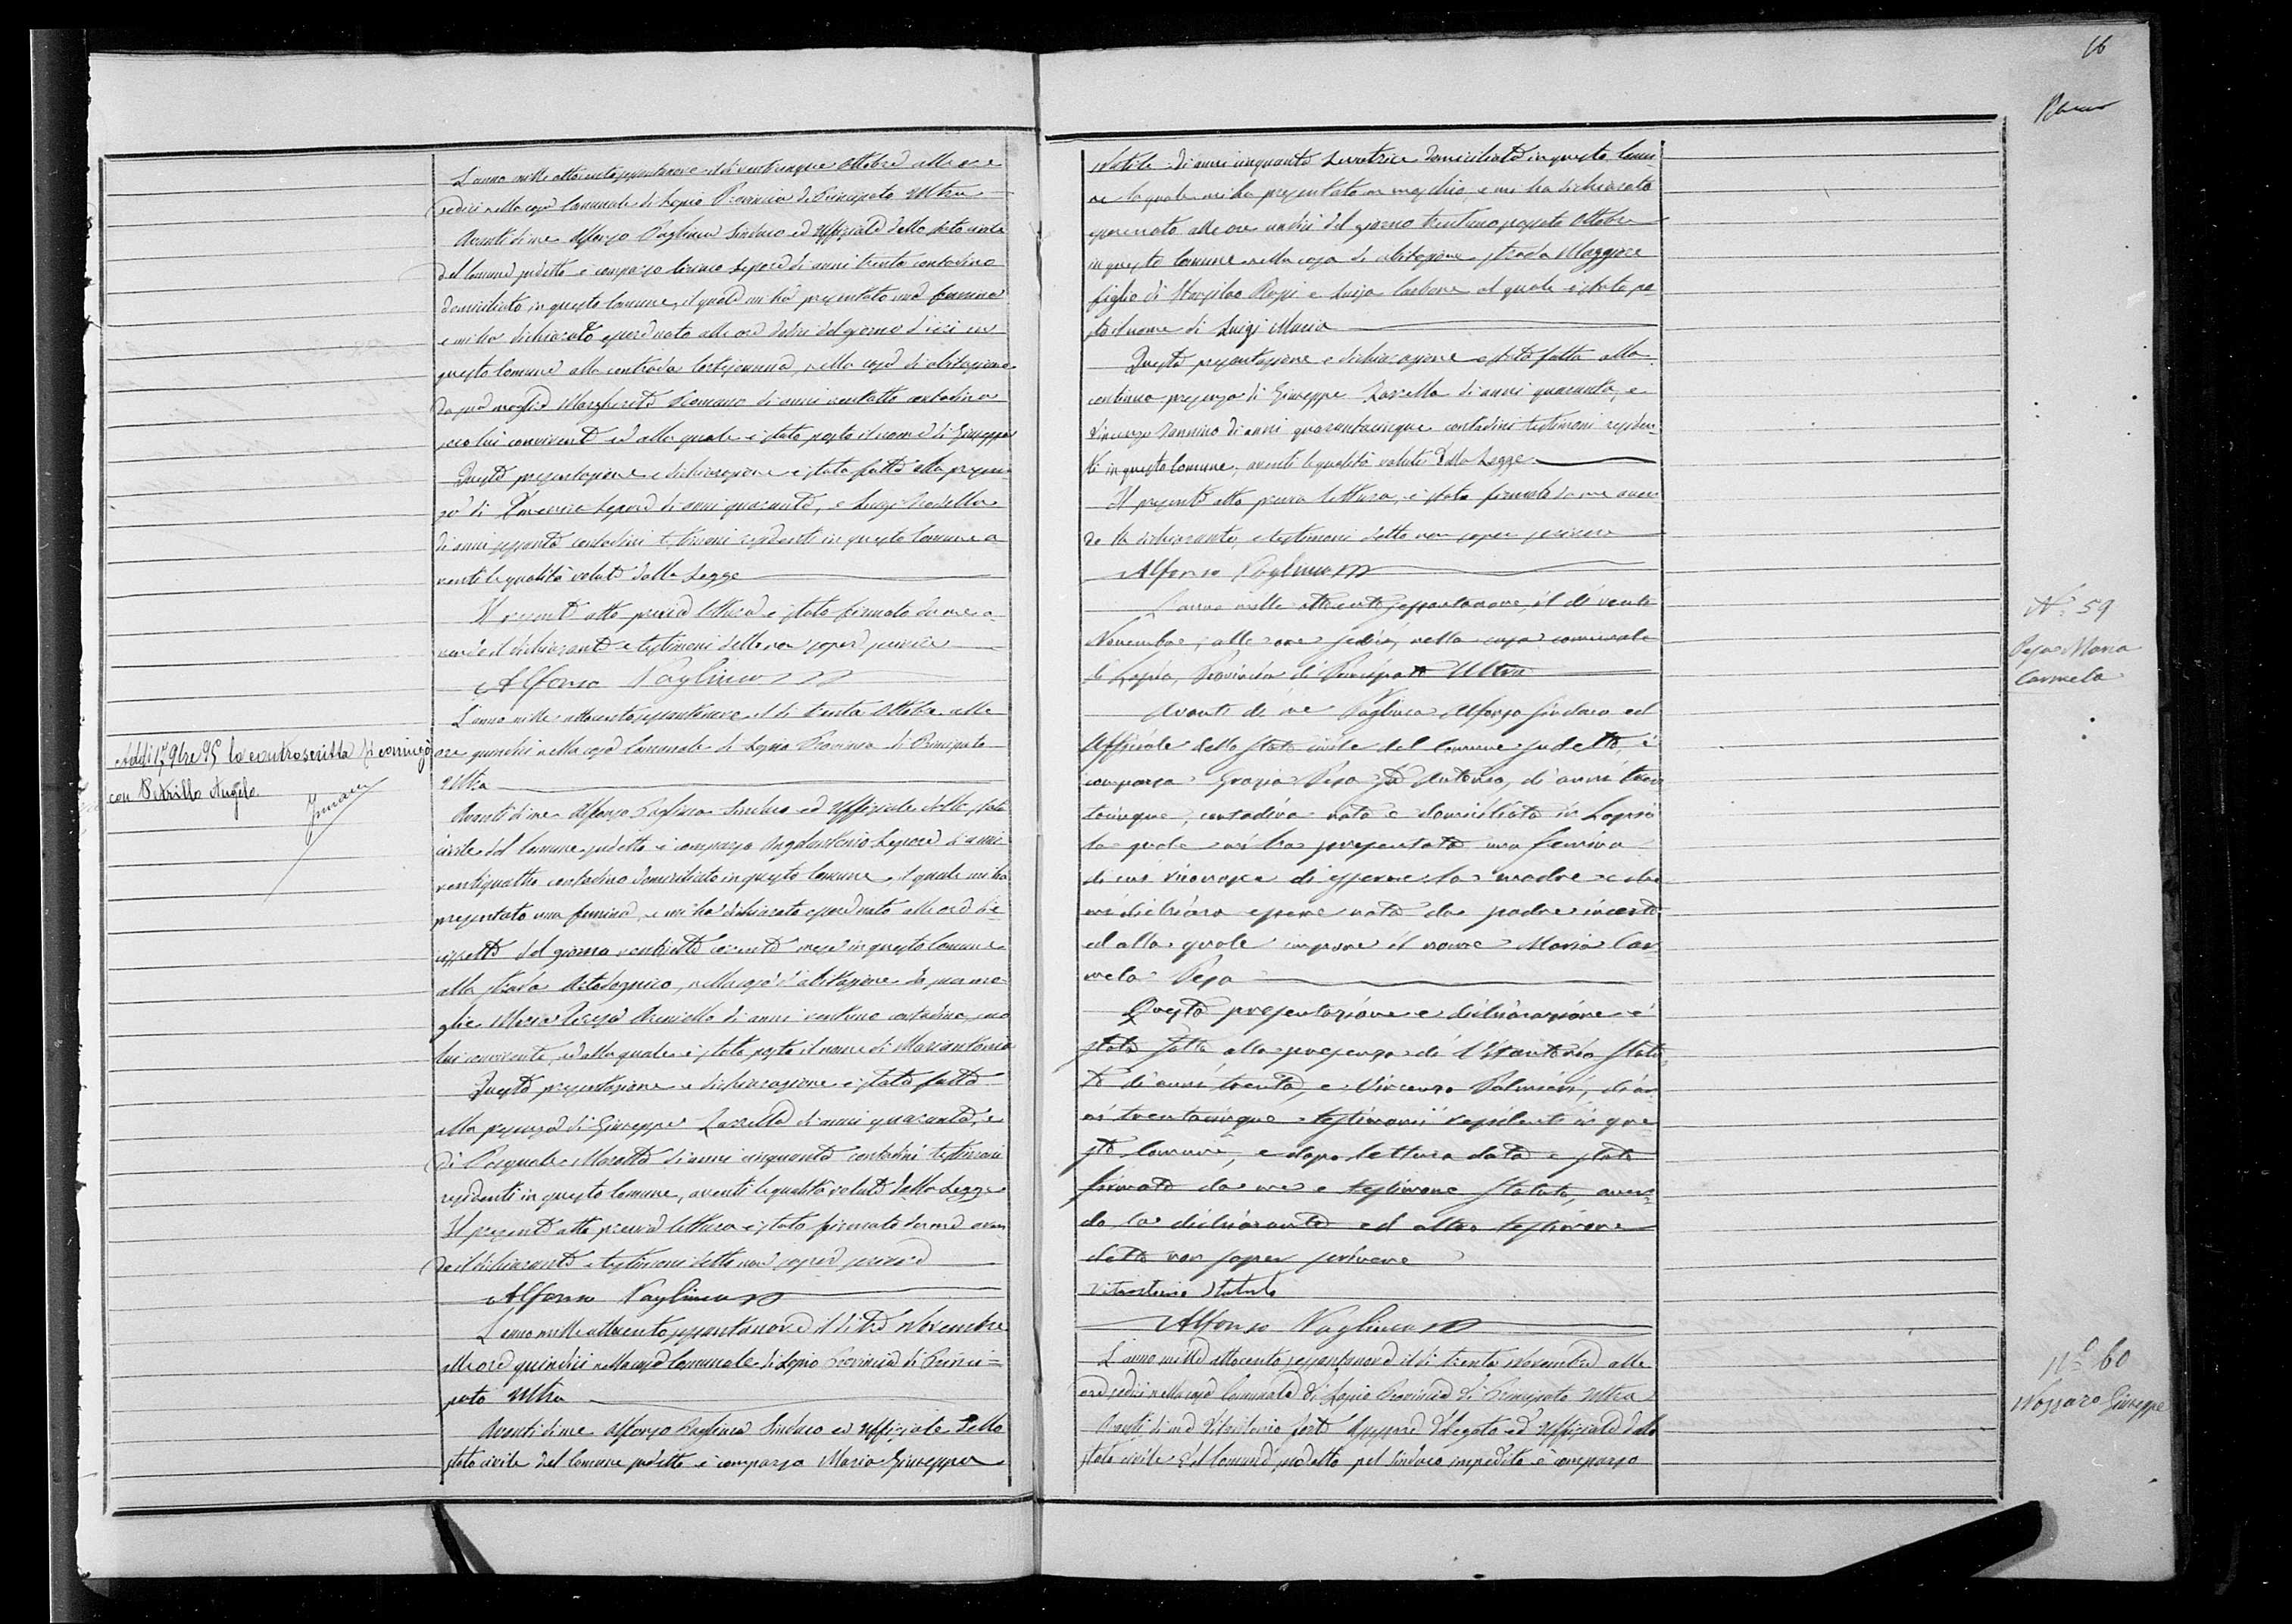 L'anno mille ottocentosessantanove il dì venticinque Ottobre alle ore
sedici nella casa Comunale di Lapio Provincia di Principato Ultra
Avanti di me Alfonso Vagliuca Sindaco ed Uffiziale dello stato civile
del Comune sudetto è comparso Lepore di anni trenta contadino
domiciliato in questo Comune, il quale mi ha presentato una femina
e mi ha dichiarato essere nata alle ore del giorno d'ieri in
questo Comune alla contrada nella casa di abitazione
da sua moglie Margherita Romano di anni ventotto contadina
seco lui convivente ed alla quale è stato posto il nome di Giuseppa
Questa presentazione e dichiarazione è stata fatta alla presen-
za di Lepore di anni quaranta, e Luigi
di anni sessanta contadini testimoni residenti in questo Comune a-
venti le qualità volute dalla Legge
Il presente atto previa lettura è stato firmato da me a-
vendo il dichiarante e testimoni detto non saper scrivere
Alfonso Vagliuca
L'anno mille ottocentosessantanove il dì trenta Ottobre alle
Addì 17 9bre 95 la controscritta si coniugò
con Petrillo Angelo
ore quindici nella casa Comunale di Lapio Provincia di Principato
Ultra
Avanti di me Alfonso Vagliuca Sindaco ed Uffiziale dello stato
civile del Comune sudetto è comparso Angelantonio Lepore di anni
ventiquattro contadino domiciliato in questo Comune, il quale mi ha
presentato una femina, e mi ha dichiarato essere nata alle ore di-
cissette del giorno corrente mese in questo Comune
alla strada nella casa d'abitazione da sua mo-
glie Maria Teresa di anni ventuno contadina, seco
lui convivente, ed alla quale è stato posto il nome di Mariantonia
Questa presentazione e dichiarazione è stata fatta
alla presenza di Giuseppe Zarrella di anni quaranta, e
di Pasquale Marotta di anni cinquanta contadini testimoni
residenti in questo Comune, aventi le qualità volute dalla Legge
Il presente atto previa lettura è stato firmato da me aven-
do il dichiarante e testimoni detto non saper scrivere
Alfonso Vagliuca
L'anno mille ottocentosessantanove il dì tre Novembre
alle ore quindici nella casa Comunale di Lapio Provincia di Princi=
pato Ultra
Avanti di me Alfonso Vagliuca Sindaco ed Uffiziale dello
stato civile del Comune sudetto è comparsa Maria Giuseppa
16
di anni cinquanta Levatrice domiciliata in questo Comu-
ne la quale mi ha presentato un maschio, e mi ha dichiarato
essere nato alle ore undici del giorno trentuno passato Ottobre
in questo Comune nella casa di abitazione strada Maggiore
figlio di Rossi e Luisa Carbone al quale è stato po-
sto il nome di Luigi Maria
Questa presentazione e dichiarazione è stata fatta alla
continua presenza di Giuseppe Zarrella di anni quaranta, e
Vincenzo Iannino di anni quarantacinque contadini testimoni residen-
ti in questo Comune, aventi le qualità volute dalla Legge
Il presente atto previa lettura, è stato firmato da me aven-
do la dichiarante, e testimoni detto non saper scrivere
Alfonso Vagliuca
N.° 59
Pesa Maria
Carmela
L'anno mille ottocentosessantanove, il dì venti
Novembre, alle ore sedici, nella casa comunale
di Lapio, Provincia di Principato Ultra
Avanti di me Vagliuca Alfonso Sindaco ed
Uffiziale dello stato civile del Comune sudetto, è
comparsa Grazia Pesa fu Antonio, di anni tren-
tacinque, contadina nata e domiciliata in Lapio
la quale mi ha presentata una femina
di cui riconosce di esserne la madre e che
mi dichiara essere nata da padre incerto
ed alla quale impone il nome Maria Car-
mela Pesa
Questa presentazione e dichiarazione è
stata fatta alla presenza di Vitantonio Statu-
to di anni trenta, e Vincenzo Palmieri, di an-
ni trentacinque testimonii residenti in que-
sto Comune, e dopo lettura data è stato
firmato da me e testimone Statuto, aven-
do la dichiarante ed altro testimone
detto non saper scrivere
Vitantonio Statuto
Alfonso Vagliuca
N.° 60
Nazzaro Giuseppe
L'anno mille ottocento sessantanove il dì trenta Novembre alle
ore sedici nella casa Comunale di Lapio Provincia di Principato Ultra
Avanti di me Vitantonio Assessore delegato ed Uffiziale dello
stato civile del Comune sudetto pel Sindaco impedito è comparso